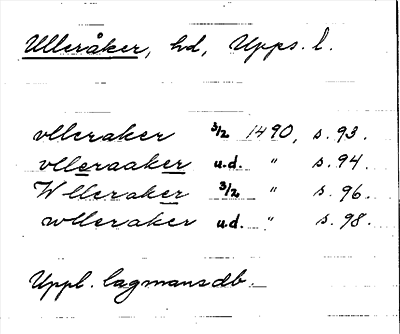 Ulleråker, hd, Upps. l.
vlleraker 3/2 1490, s. 93.
vlleraaker u.d. " s. 94.
Wlleraker 3/2 " s. 96.
wlleraker u.d. " s. 98.
Uppl. lagmansdb.